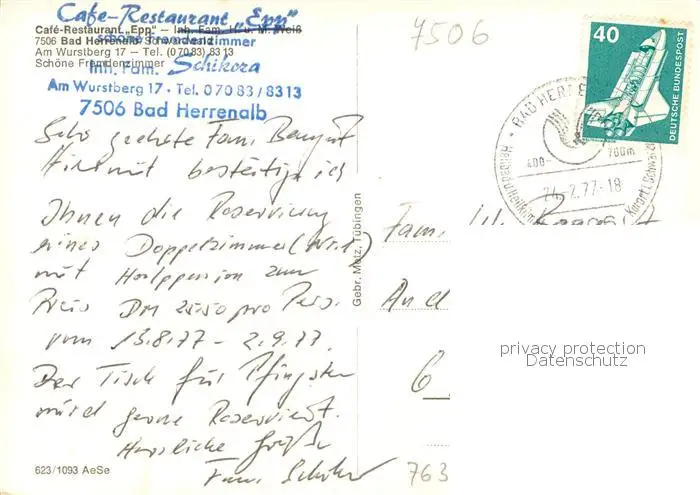 Cafe-Restaurant „Epp"
Café-Restaurant „Epp" — Inh. Fam. H. u. M. Weiß
schöne Fremdenzimmer
7506 Bad Herrenalb Schwarzwald
Am Wurstberg 17 — Tel. (07083) 8313
Schöne Fremdenzimmer
Inh. Fam. Schikora
Am Wurstberg 17 · Tel. 07083/8313
7506 Bad Herrenalb
7506
40
DEUTSCHE BUNDESPOST
BAD HERRE
400- 700m
24.-2.77-18
Heilbad u Heilklim
Kurort i. Schwarzw
Sehr geehrte Fam.
Hiermit bestätige ich
Ihnen die Reservierung
eines Doppelzimmer
mit Halbpension zum
Preis DM pro Pers.
vom 13.8.77 - 2.9.77.
Der Tisch für Pfingsten
wird gerne Reserviert.
Herzliche Grüße
Fam. Schikora
Gebr. Metz, Tübingen
Fam.
An d
6
763
privacy protection
Datenschutz
623/1093 AeSe